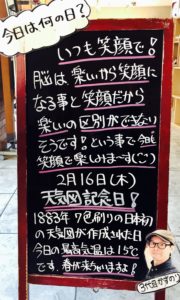 今日は何の日?
いつも笑顔で!
脳は楽しいから笑顔に
なる事と笑顔だから
楽しいの区別ができない
そうです!という事で今日も
笑顔で楽しみまーす
2月16日(木)
天気図記念日!
1883年7色刷りの日本初
の天気図が作成された日
今日の最高気温は15℃
です。春が来ちゃいますね!
3代目かずのり